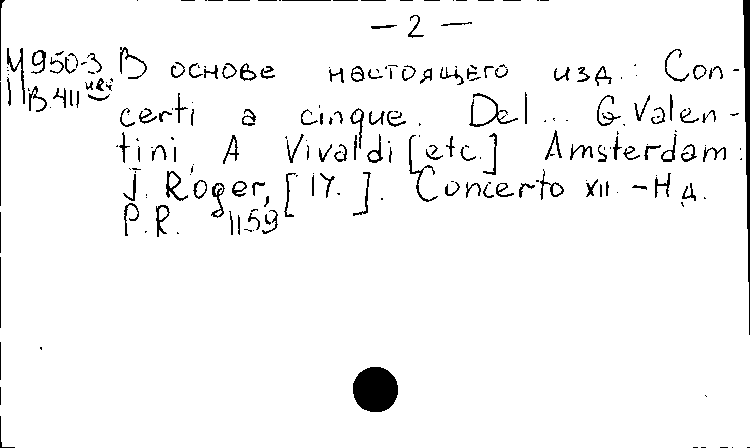 — 2 —
М950-3 В основе настоящего изд.: Con-
В.411 certi a cinque. Del... G. Valen-
tini, A Vivaldi [etc.] Amsterdam:
J. Roger, [17. ]. Concerto XII. -Нд.
P.R. 1159